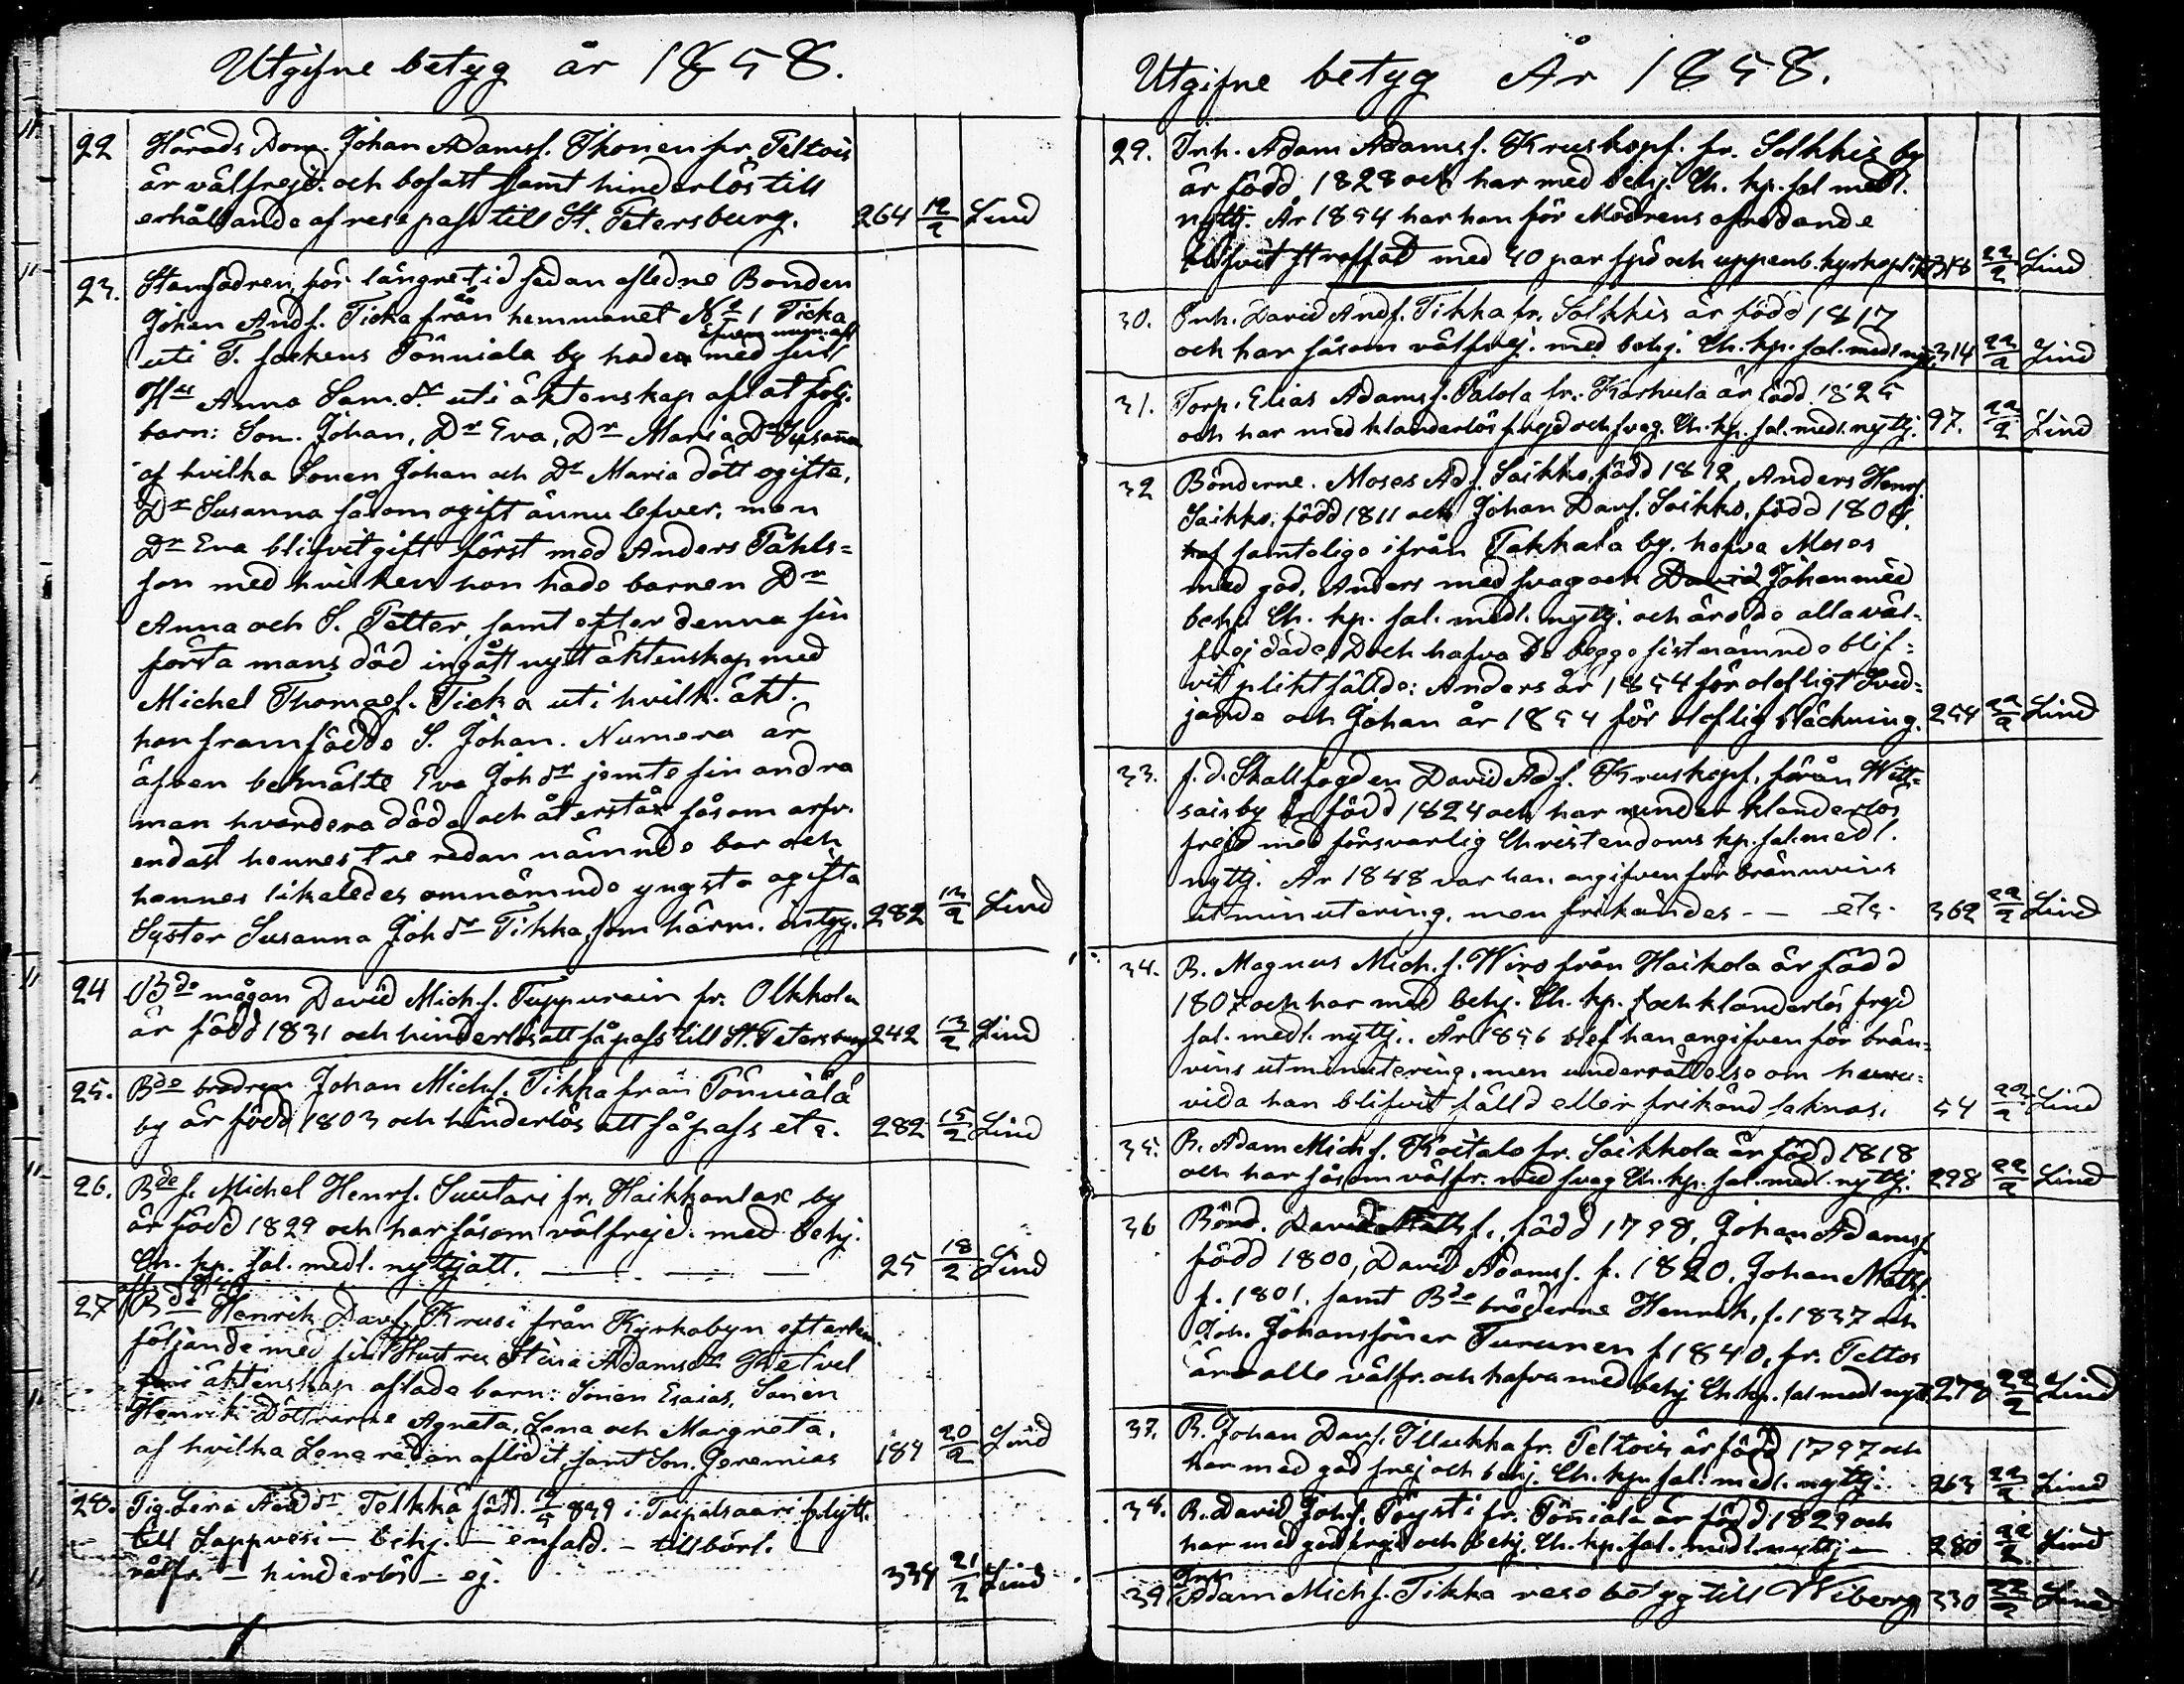 Utgifne betyg år 1858.
22 Härads Dom. Johan Adamsf. Ihonen fr. Peltois
är välfrejd. och bofast samt hinderlös till
erhållande af resepass till St. Petersburg. 264 12/2 Lind
23. Stamfadren, för längre tid sedan aflidne Bonden
Johan Andf. Ticka från hemmanet No 1 Ticka
uti T. sockens Tönniala by hade med sin
Hu Anna Sam.dr uti äktenskap aflat följ.
barn: Son. Johan, Dr Eva, Dr Maria, Dr Susanna
af hvilka Sonen Johan och Dr Maria dött ogifta,
Dr Susanna såsom ogift ännu lefver, men
Dr Eva blifvit gift först med Anders Påhls=
son med hvilken hon hade barnen Dr
Anna och S. Petter, samt efter denna sin
första mans död ingått nytt äktenskap med
Michel Thomasf. Ticka uti hvilk. äkt.
hon framfödde S. Johan. Numera är
äfven bemälte Eva Joh.dr jemte sin andra
man hvardera döda och återstår såsom arfv.
endast hennes tre redan nämnde bar och
hennes likaledes omnämnde yngsta ogifta
Syster Susanna Joh.dr Tikka, som härm. intyg. 282 13/2 Lind
24 Bde mågen David Mich.f. Tuppurain fr. Olkkola
är född 1831 och hinderlös att få pass till St. Petersburg 242 13/2 Lind
25. Bde brodren Johan Michf. Tikka från Tönniälä
by är född 1803 och hinderlös att få pass etc. 282 15/2 Lind
26. Bde f. Michel Henrf. Suutari fr. Haikkanlax by
är född 1829 och har såsom välfrejd. med behj.
Ch. kp. sal. medl. nyttjatt. 25 18/2 Lind
27 Bde Henrik Davf. Krusi från Kyrkobyn efterlem.
följande med sin Hustru Stina Adamsdr Gretvel
äktenskap aflade barn: Sonen Esaias, Sonen
Henrik Döttrarne Agneta, Lena och Margreta,
af hvilka Lena redan aflidit, samt Son. Jeremias 184 20/2 Lind
28. Pig. Lena And.dr Telkkä född 839 i Taipalsaari flytt.
till Lappvesi – behj. – enfald. – tillbörl.
välfr. – hinderlös – ej. 334 21/2 Lind
Utgifne betyg År 1858.
29. Inh. Adam Adamsf. Kruskopf. fr. Solkkis by
är född 1828 och har med behj. Ch. kp. sal medl.
nyttj. År 1854 har han för Modrens ofredande
blifvit straffad med 40 par spö och uppenb. kyrkoplikt. 318 22/2 Lind
30. Inh. David Andf. Tikka fr. Solkkis är född 1817
och har såsom välfrej. med behj. Ch. kp. sal. medl nyttj. 314 22/2 Lind
31. Torp. Elias Adamsf. Palola fr. Karhula är född 1825
och har med klanderlös frejd och svag. Ch. kp. sal. medl. nyttj. 97. 22/2 Lind
32 Bönderne. Moses Adf. Saikko, född 1812, Anders Henrf.
Saikko, född 1811 och Johan Davf. Saikko, född 1808,
samtelige ifrån Takkala by. hafva Moses
med god, Anders med svag och David Johan med
behj. Ch. kp. sal. medl. nyttj. och äro de alla väl-
frejdade, Doch hafva De begge sistnämnde blif=
vit pliktfällde: Anders år 1854 för olofligt Sved=
jande och Johan år 1854 för oloflig släckning. 254 22/2 Lind
33. f.d. Skallfogden David Adf. Kruskopf, från Witt=
sais by är född 1824 och har under klanderlös
frejd med försvarlig Christendoms kp. sal. medl.
nyttj. År 1848 var han angifven för brännvins
utminutering, men frikändes – – etc. 362 22/2 Lind
34. B. Magnus Mich.f. Wiro från Haikola är född
1807 och har med behj. Ch. kp. och klanderlös frejd
sal. medl. nyttj. År 1856 blef han angifven för brän=
vins utminutering, men underrättelse om huru=
vida han blifvit fälld eller frikänd saknas. 54 22/2 Lind
35. B. Adam Michf. Koitalo fr. Saikkola är född 1818
och har såsom välfr. med svag Ch. kp. sal. medl. nyttj. 298 22/2 Lind
36 Bönd. David Mattsf., född 1798, Johan Adamsf
född 1800, David Adamsf. f. 1820. Johan Mattsf.
f. 1801. samt Bde bröderne Henrik, f. 1837 och
Joh. Johanssöner Turunen f 1840, fr. Peltos
äro alle välfr. och hafva med behj Ch. kp. sal medl nyttj. 270 22/2 Lind
37. B. Johan Davf. Illukka fr. Peltois är född 1797 och
har med god frej och behj. Ch. kp. sal. medl. nyttj. 263 22/2 Lind
38. B. David Johf. Töysti fr. Tönniälä är född 1829 och
har med god frejd och behj. Ch. kp. sal. medl. nyttj – 280 22/2 Lind
39 Inh Adam Michf. Tikka rese betyg till Wiborg 330 22/2 Lind